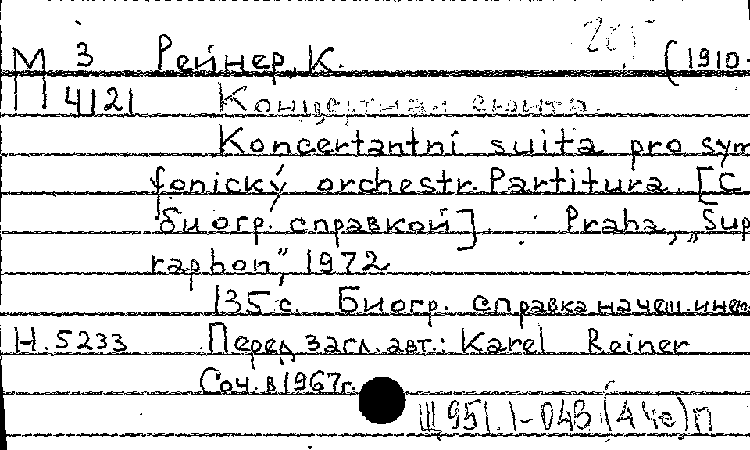 М 3 Рейнер, К. (1910-
4121 Концертная сюита.
Koncertantní suita pro sym
fonický orchestr. Partitura. [С
биогр. справкой]. Praha, „Sup
raphon", 1972
135 с. Биогр. справка на чеш. и нем
Н. 5233 Перед загл. авт.: Karel Reiner
Соч. в 1967г.
Щ951.1-04В